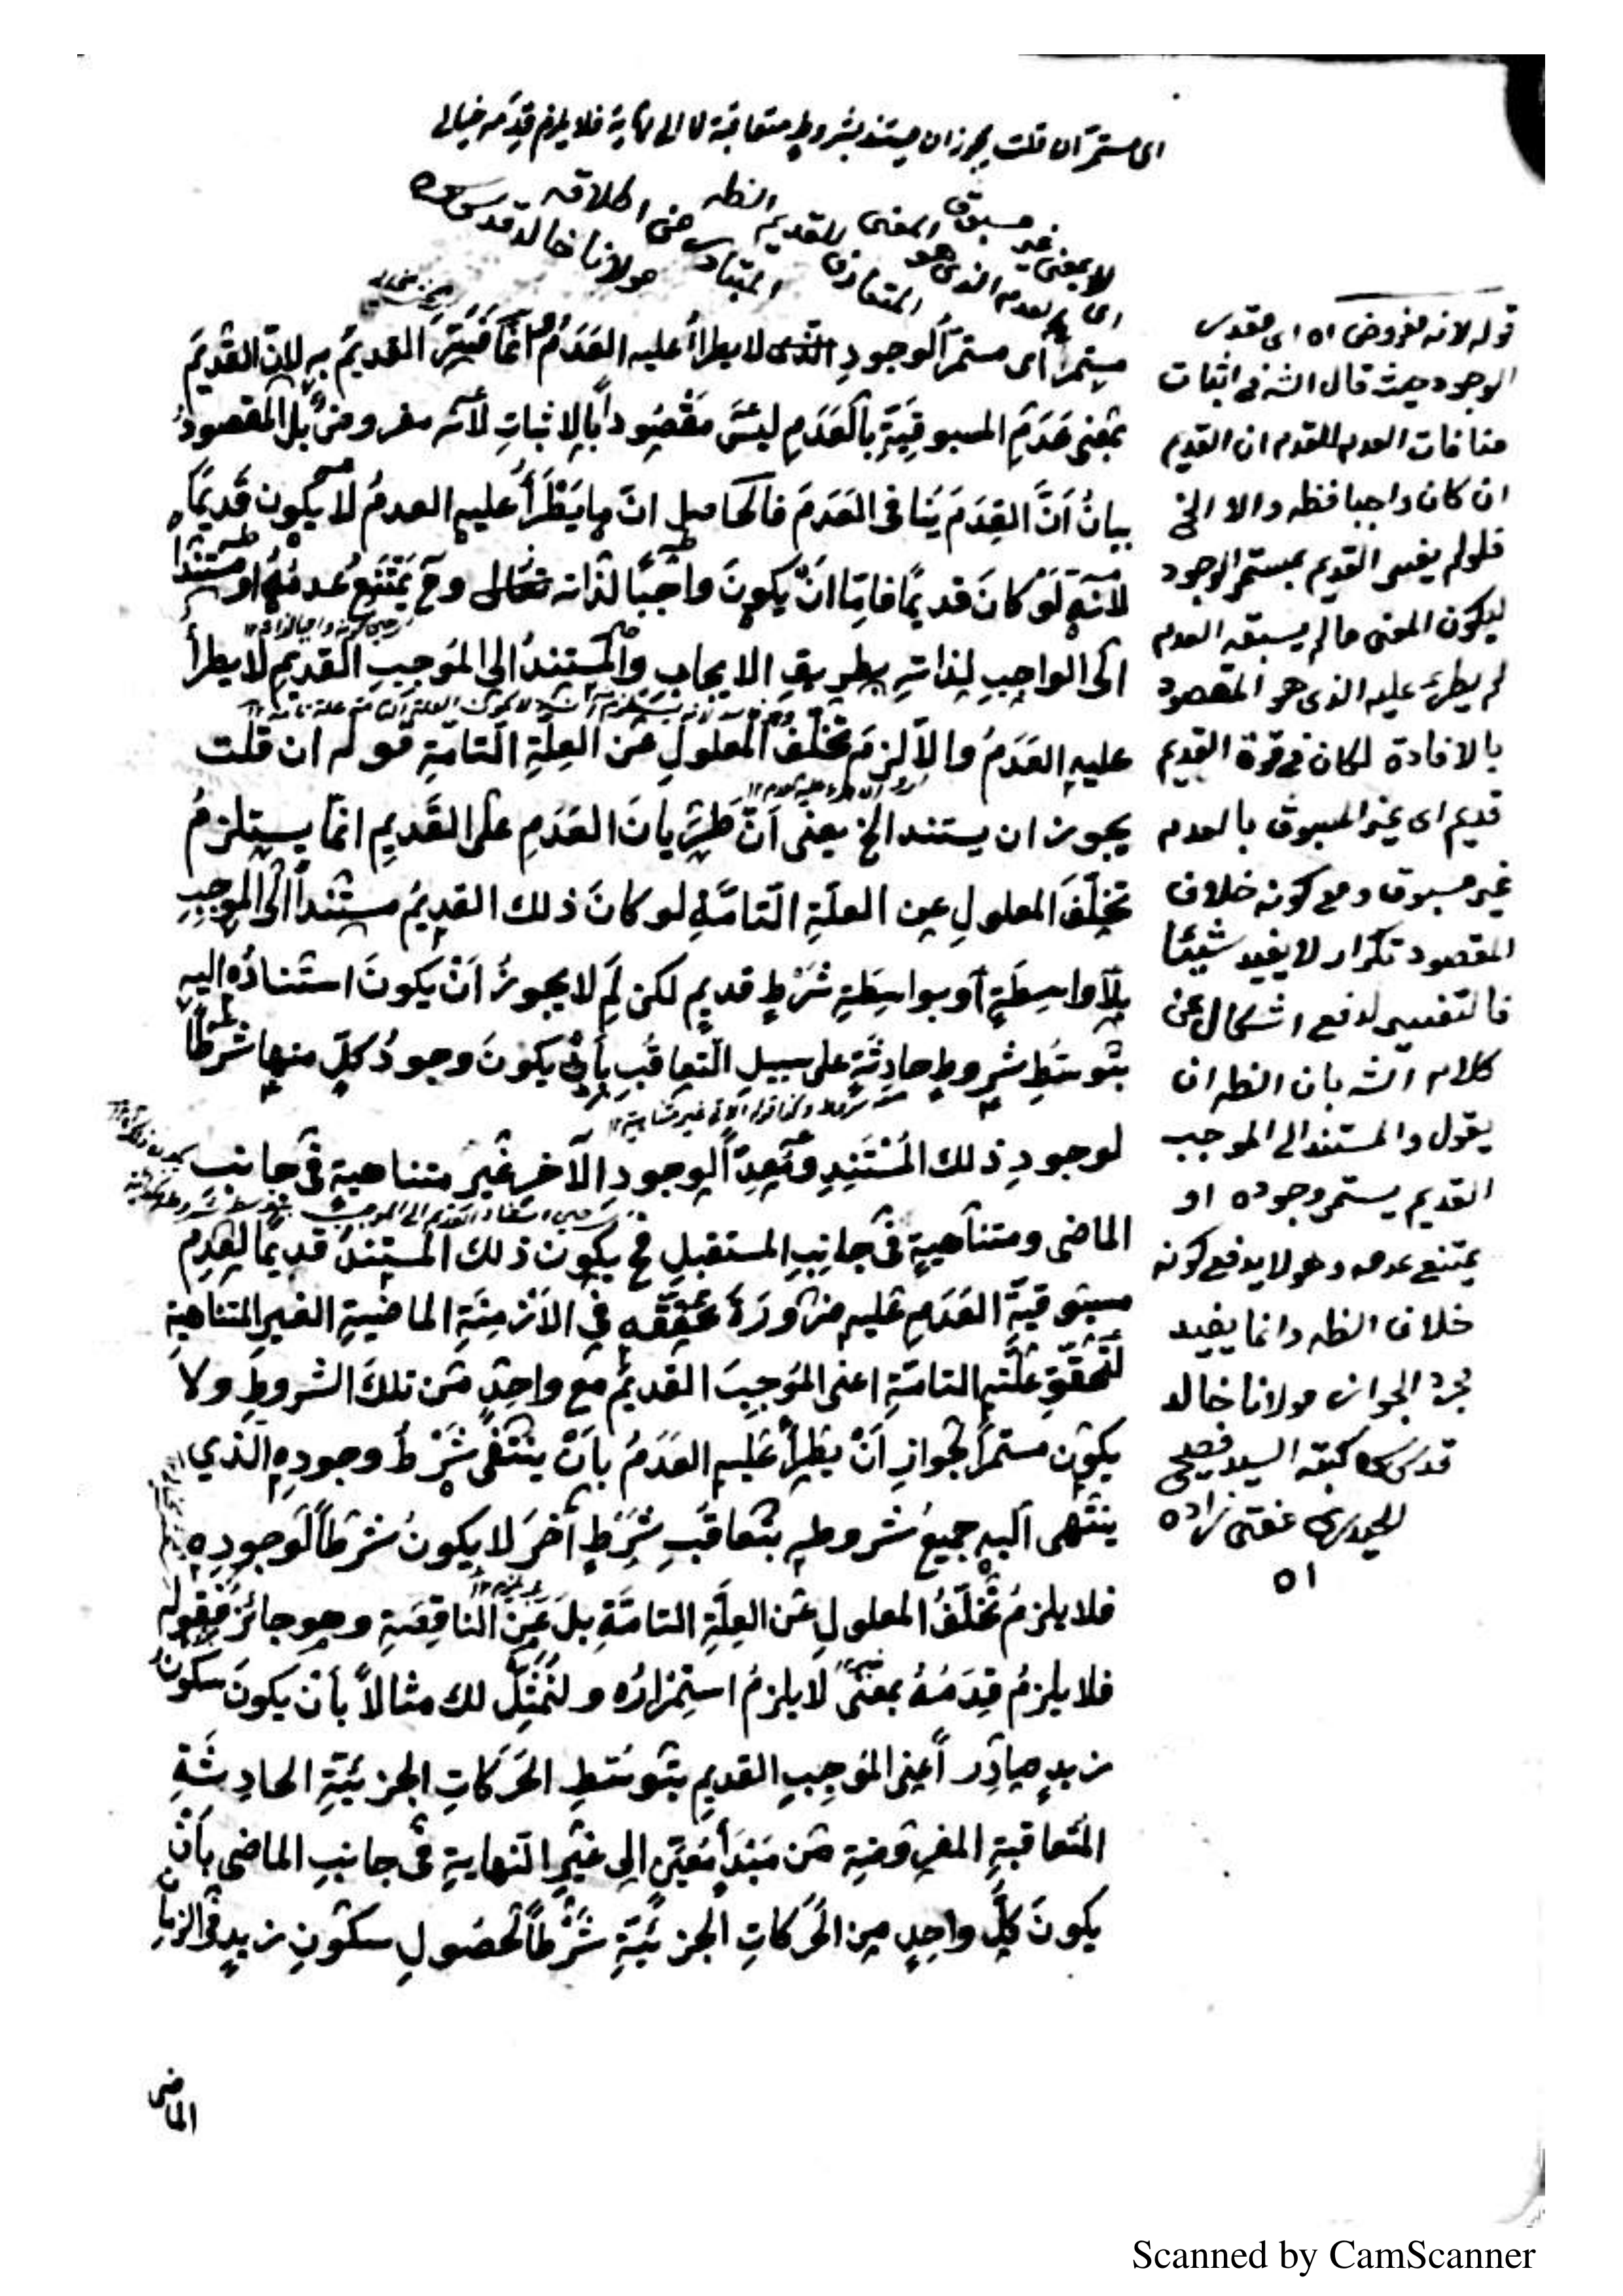 اى مستمر ان قلت يجوز ان يستند بشروط متعاقبة لا الى نهاية فلا يلزم قدمه خيالى
لا بمعنى غير مسبوق
اى بالعدم الذى هو المعنى المتعارف للقديم
المتبادر من اطلاقه
مولانا خالد قدس سره
مستمر اى مستمر الوجود الذى لا يطرأ عليه العدم انما فسر القديم به لان القديم
بمعنى عدم المسبوقية بالعدم ليس مقصودا بالاثبات لانه مفروض بل المقصود
بيان ان القدم ينافى العدم فالحاصل ان ما يطرأ عليه العدم لا يكون قديما
لانه لو كان قديما فاما ان يكون واجبا لذاته تعالى وح يمتنع عدمه او مستندا
الى الواجب لذاته بطريق الايجاب والمستند الى الموجب القديم لا يطرأ
عليه العدم والا لزم تخلف المعلول عن العلة التامة قوله ان قلت
يجوز ان يستند الخ يعنى ان طريان العدم على القديم انما يستلزم
تخلف المعلول عن العلة التامة لو كان ذلك القديم مستندا الى الموجب
بلا واسطة او بواسطة شرط قديم لكن لم لا يجوز ان يكون استناده اليه
بتوسط شروط حادثة على سبيل التعاقب بان يكون وجود كل منها شرطا
لوجود ذلك المستند ومعدا لوجود الآخر غير متناهية فى جانب
الماضى ومتناهية فى جانب المستقبل فح يكون ذلك المستند قديما لعدم
مسبوقية العدم عليه ضرورة تحققه فى الازمنة الماضية الغير المتناهية
لتحقق علته التامة اعنى الموجب القديم مع واحد من تلك الشروط ولا
يكون مستمرا لجواز ان يطرأ عليه العدم بان ينتفى شرط وجوده الذي
ينتهى اليه جميع شروطه بتعاقب شرط آخر لا يكون شرطا لوجوده
فلا يلزم تخلف المعلول عن العلة التامة بل عن الناقصة وهو جائز فقوله
فلا يلزم قدمه بمعنى لا يلزم استمراره ولنمثل لك مثالا بان يكون سكون
زيد صادر اعنى الموجب القديم بتوسط الحركات الجزئية الحادثة
المتعاقبة المفروضة من مبدأ معين الى غير النهاية فى جانب الماضى بان
يكون كل واحد من الحركات الجزئية شرطا لحصول سكون زيد فى الزمان
الماضى
قوله لانه مفروض اه اى مقدس
الوجود حيث قال الش فى اثبات
منافات العدم للقدم ان القديم
ان كان واجبا فظه والا الخ
فلو لم يفسر القديم بمستمر الوجود
ليكون المعنى ما لم يسبقه العدم
لم يطرء عليه الذى هو المقصود
بالافادة لكان فى قوة القديم
قديم اى غير المسبوق بالعدم
غير مسبوق ومع كونه خلاف
المقصود تكرار لا يفيد شيئا
فالتفسير لدفع اشكال عن
كلام الش بان الظه ان
يقول والمستند الى الموجب
القديم يستمر وجوده او
يمتنع عدمه وهو لا يدفع كونه
خلاف الظه وانما يفيد
مجرد الجواز مولانا خالد
قدس سره كتبه السيد فصيحى
الحيدرى مفتى زاده
اه
Scanned by CamScanner